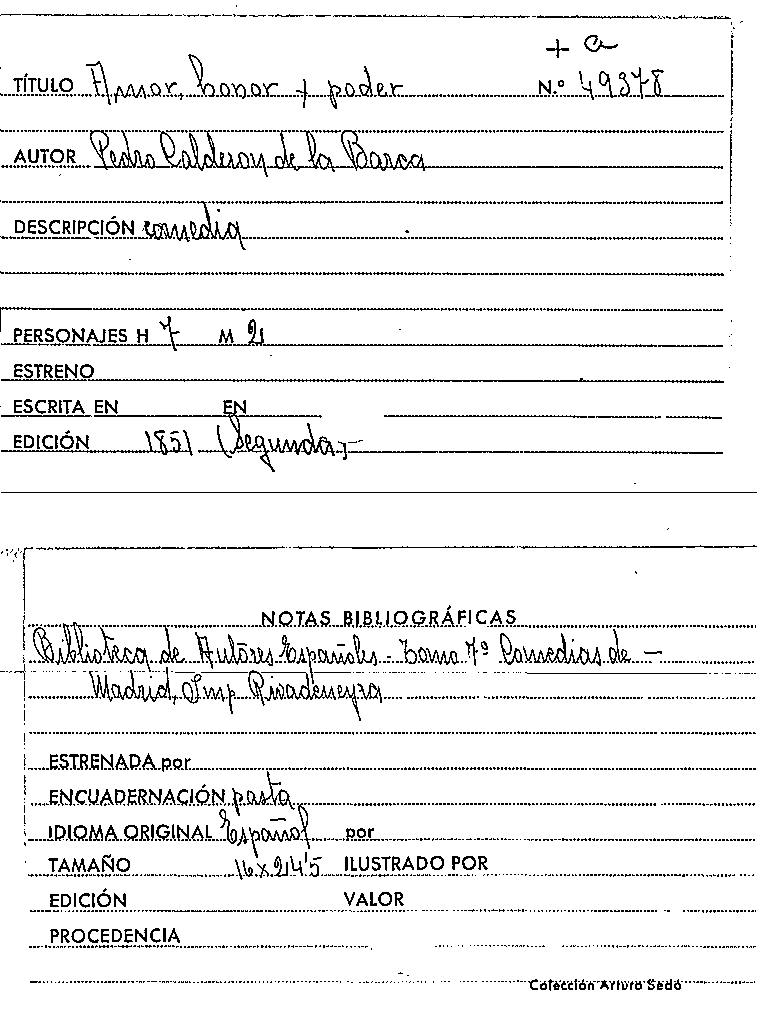 + a
TÍTULO Amor, honor y poder N.º 49378
AUTOR Pedro Calderon de la Barca
DESCRIPCIÓN comedia
PERSONAJES H 7 M 2
ESTRENO
ESCRITA EN EN
EDICIÓN 1851 (Segunda)-
NOTAS BIBLIOGRÁFICAS
Biblioteca de Autores Españoles - Tomo 7º Comedias de -
Madrid, Imp Rivadeneyra
ESTRENADA por
ENCUADERNACIÓN pasta
IDIOMA ORIGINAL Español por
TAMAÑO 16 x 24'5 ILUSTRADO POR
EDICIÓN VALOR
PROCEDENCIA
Colección Arturo Sedó